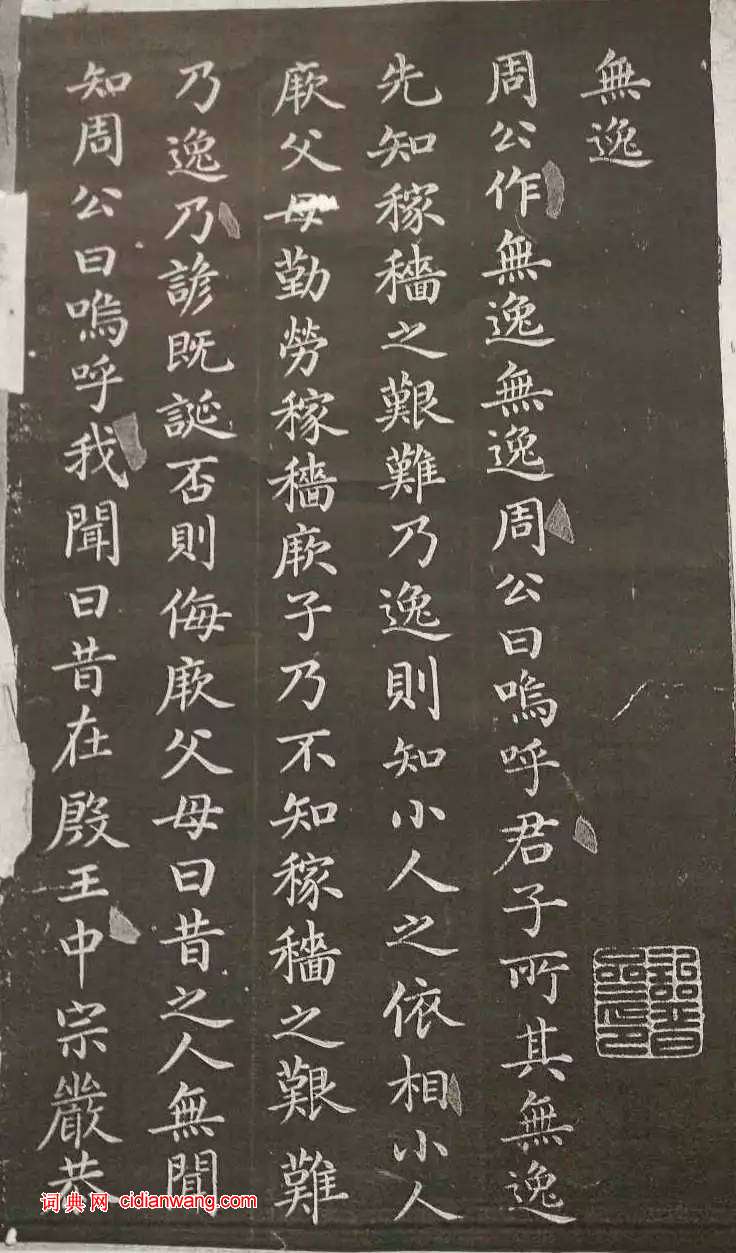 無逸
周公作無逸無逸周公曰嗚呼君子所其無逸
先知稼穡之艱難乃逸則知小人之依相小人
厥父母勤勞稼穡厥子乃不知稼穡之艱難
乃逸乃諺既誕否則侮厥父母曰昔之人無聞
知周公曰嗚呼我聞曰昔在殷王中宗嚴恭
词典网 cidianwang.com